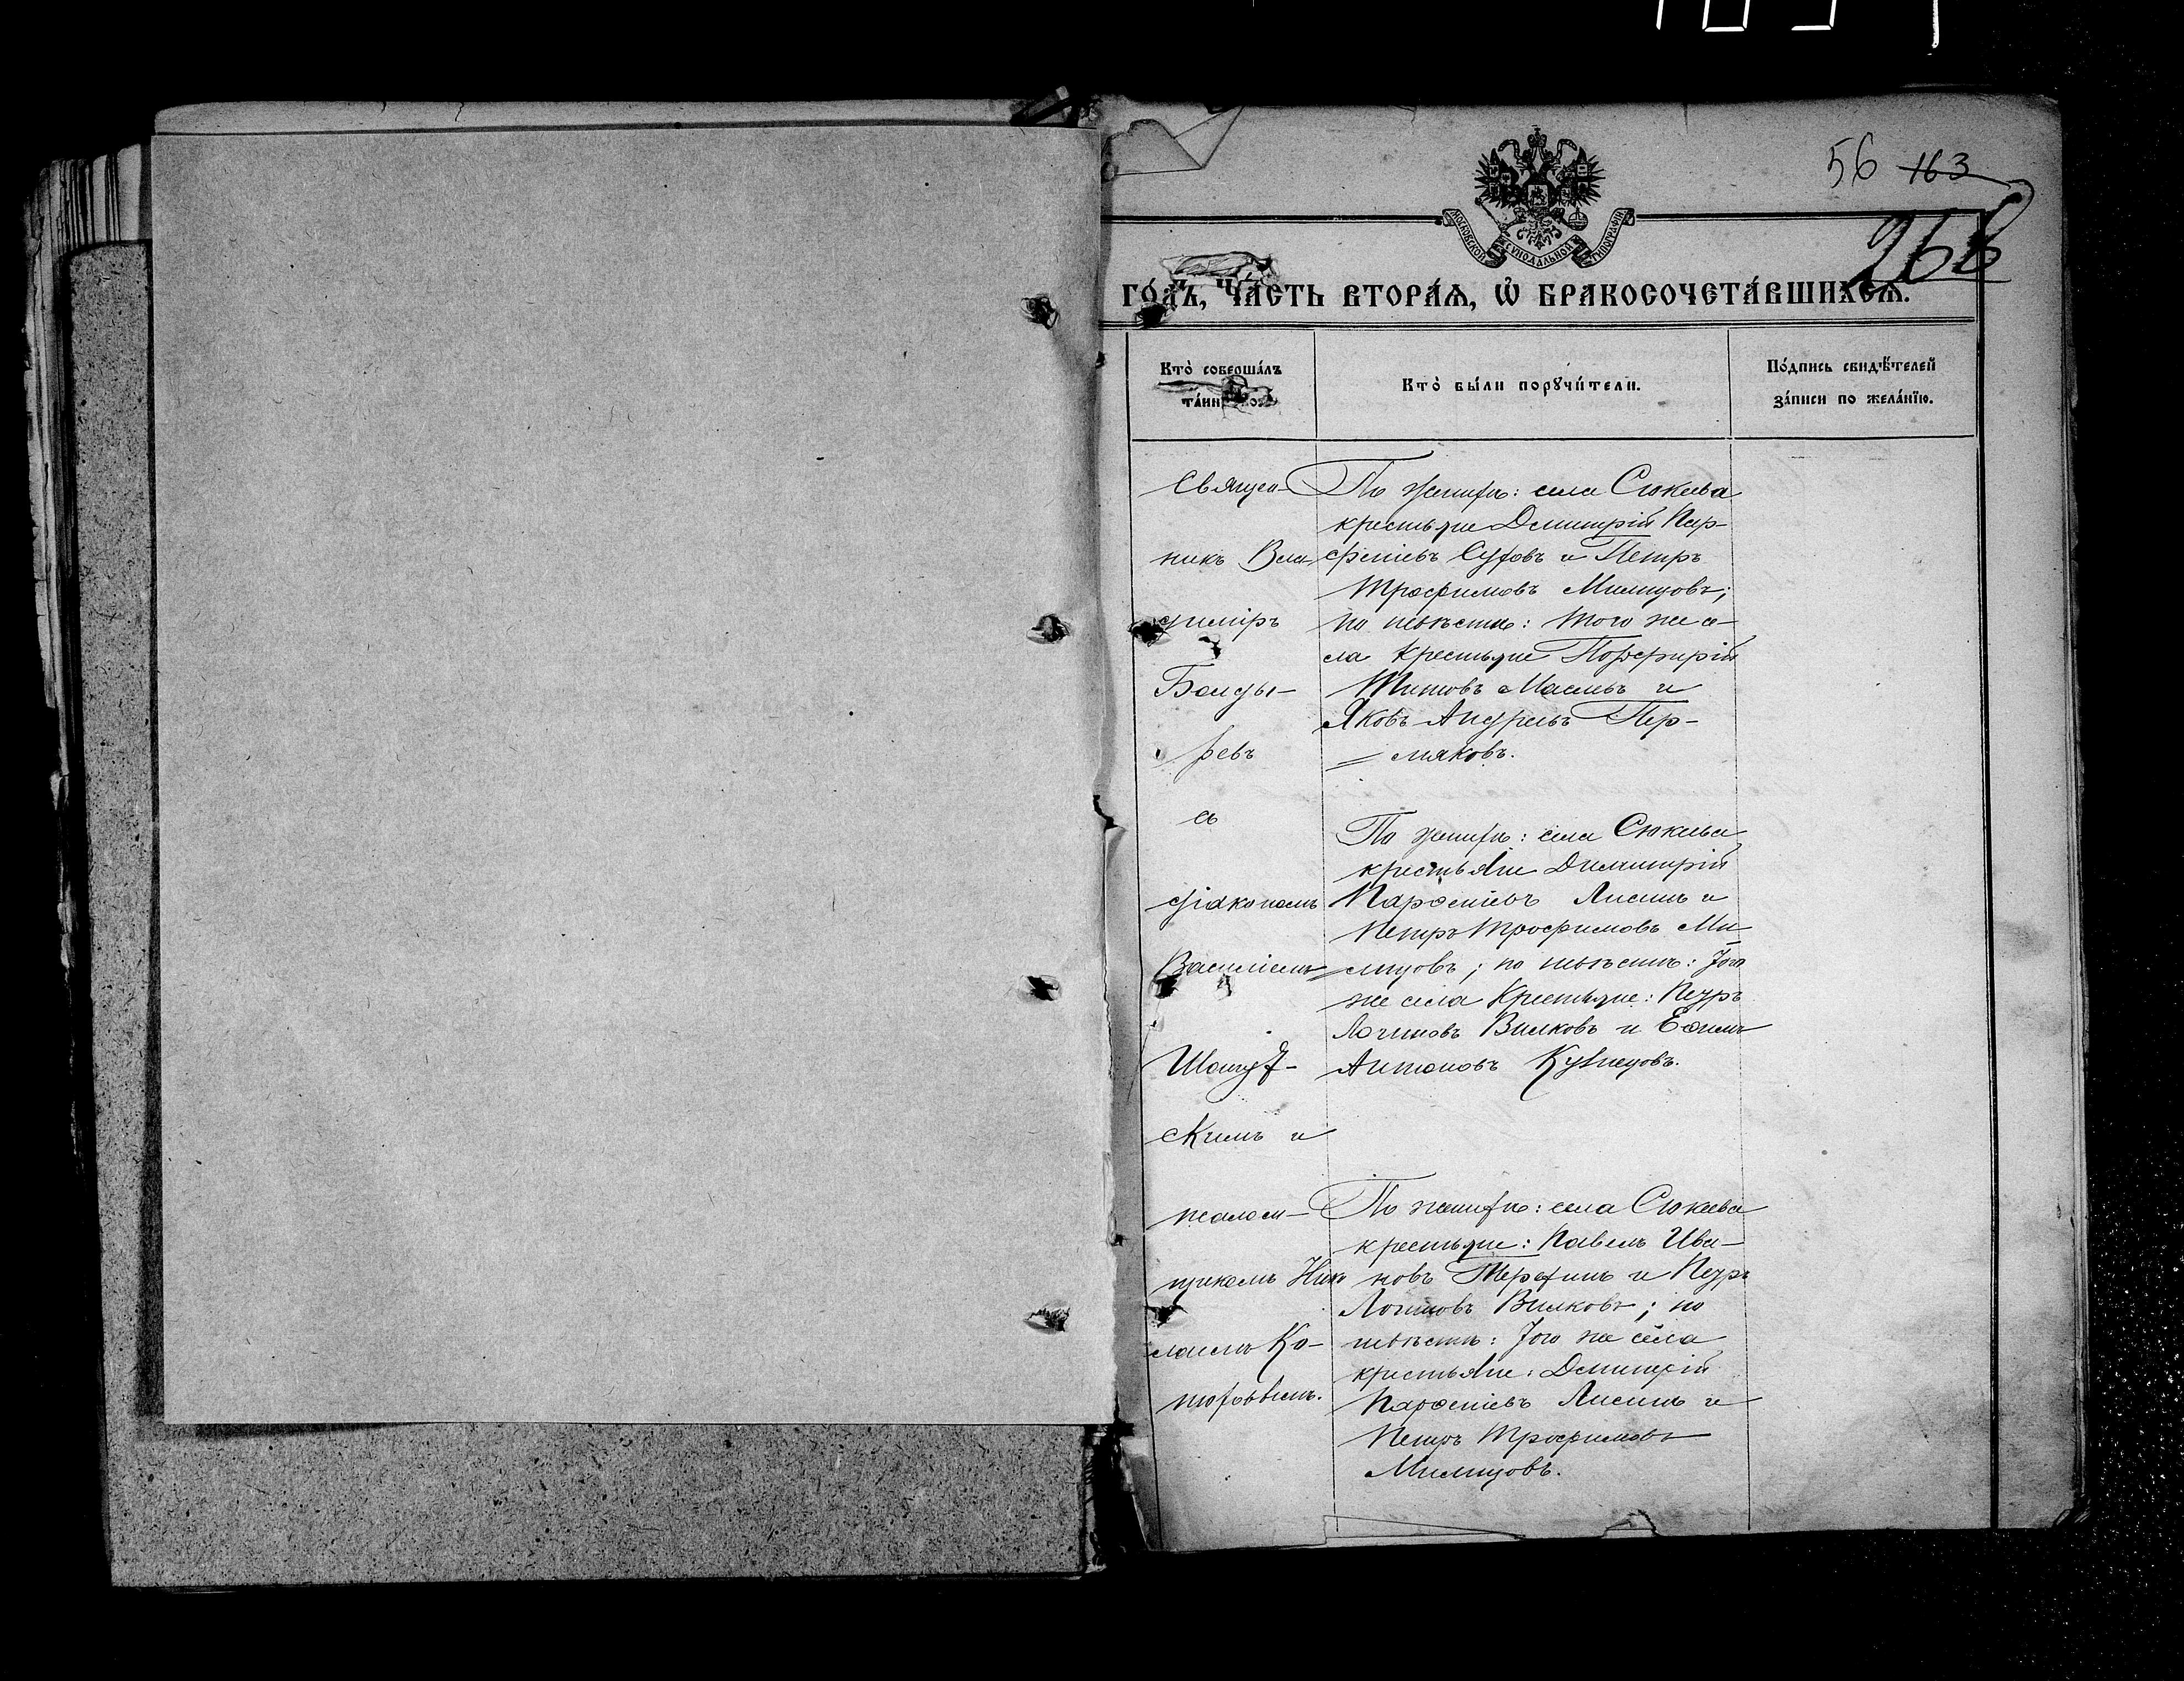 56 163
266
МОСКОВСКОЙ СѴНОДАЛЬНОЙ ТИПОГРАФІИ
ГО́ДЪ, ЧА́СТЬ ВТОРА́Я, Ѡ҆ БРАКОСОЧЕТА́ВШИХСЯ.
Кто̀ соверша́лъ
та́инство.
Кто̀ бы́ли порꙋчи́тели.
По́дпись свидѣ́телей
за́писи по жела́нїю.
Священ-
никъ Вла-
димiръ
Болды-
ревъ
съ
дiакономъ
Василiемъ
скимъ и
псалом-
щикомъ Нико
лаемъ Ко-
По женихѣ: села Сюкеева
крестьяне Димитрій Пар-
феніевъ и Петръ
Трофимовъ Милицовъ;
по невѣстѣ: того же се-
ла крестьяне Порфирій
Титовъ Маслевъ и
Яковъ Андреевъ Пер-
мяковъ.
По женихѣ: села Сюкеева
крестьяне Димитрій
Парѳеніевъ Лисинъ и
Петръ Трофимовъ Ми
лицовъ; по невѣстѣ: того
же села крестьяне: Петръ
Логиновъ Вилковъ и Еѳимъ
Антоновъ Кузнецовъ.
По женихѣ: села Сюкеева
крестьяне: Павелъ Ива-
новъ Терехинъ и Петръ
Логиновъ Вилковъ; по
невѣстѣ: того же села
крестьяне: Димитрій
Парѳеніевъ Лисинъ и
Петръ Трофимовъ
Милицовъ.